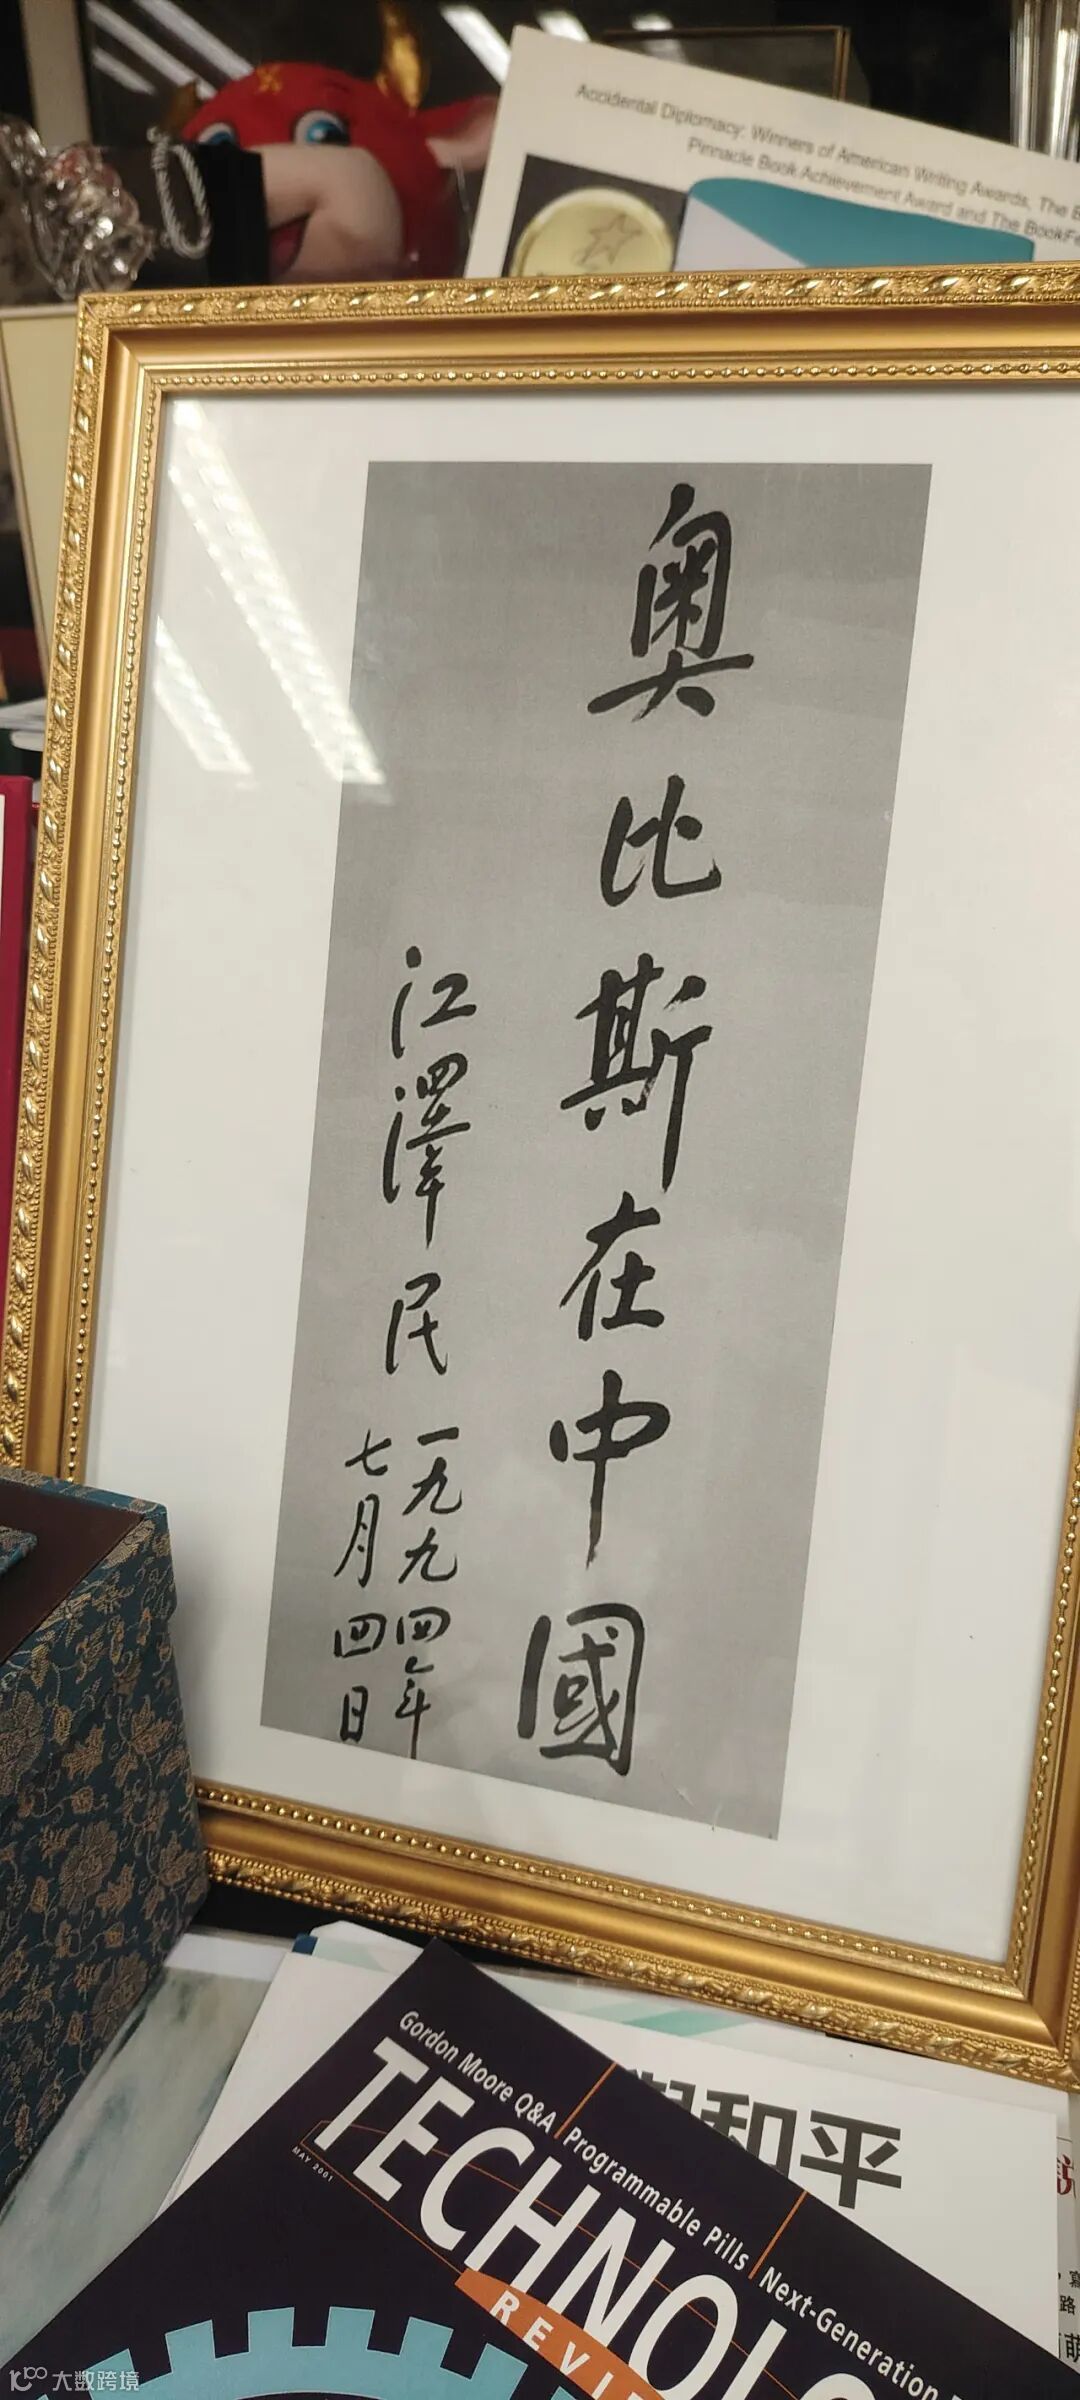 Accidental Diplomacy: Winners of American Writing Awards, The B
Pinnacle Book Achievement Award and The BookFe
奥比斯在中國
江澤民
一九九四年
七月四日
和平
Gordon Moore Q&A | Programmable Pills | Next-Generation
MAY 2001
TECHNOLO
REVI
路
萌
大数跨境